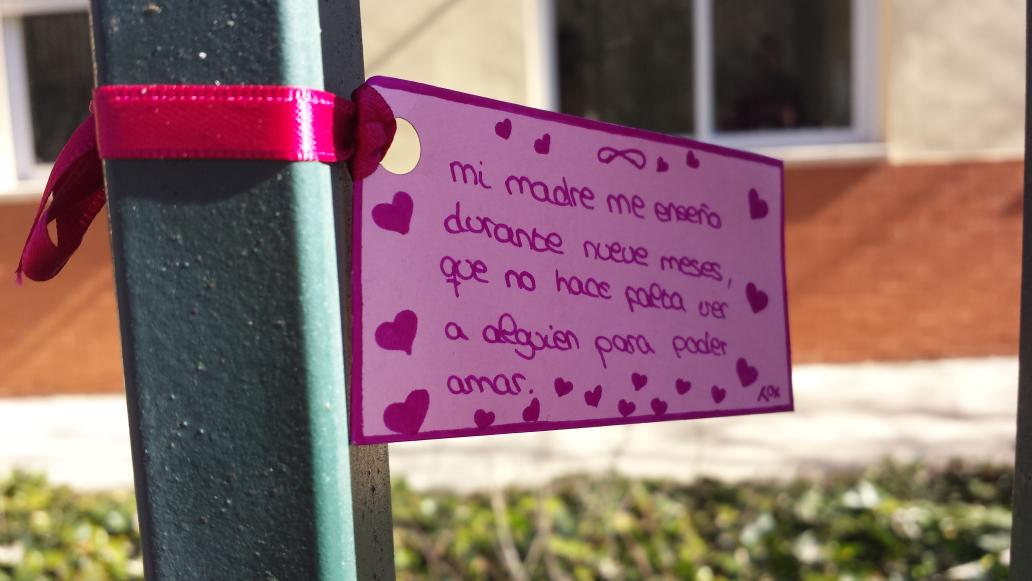 mi madre me enseño
durante nueve meses,
que no hace falta ver
a alguien para poder
amar.